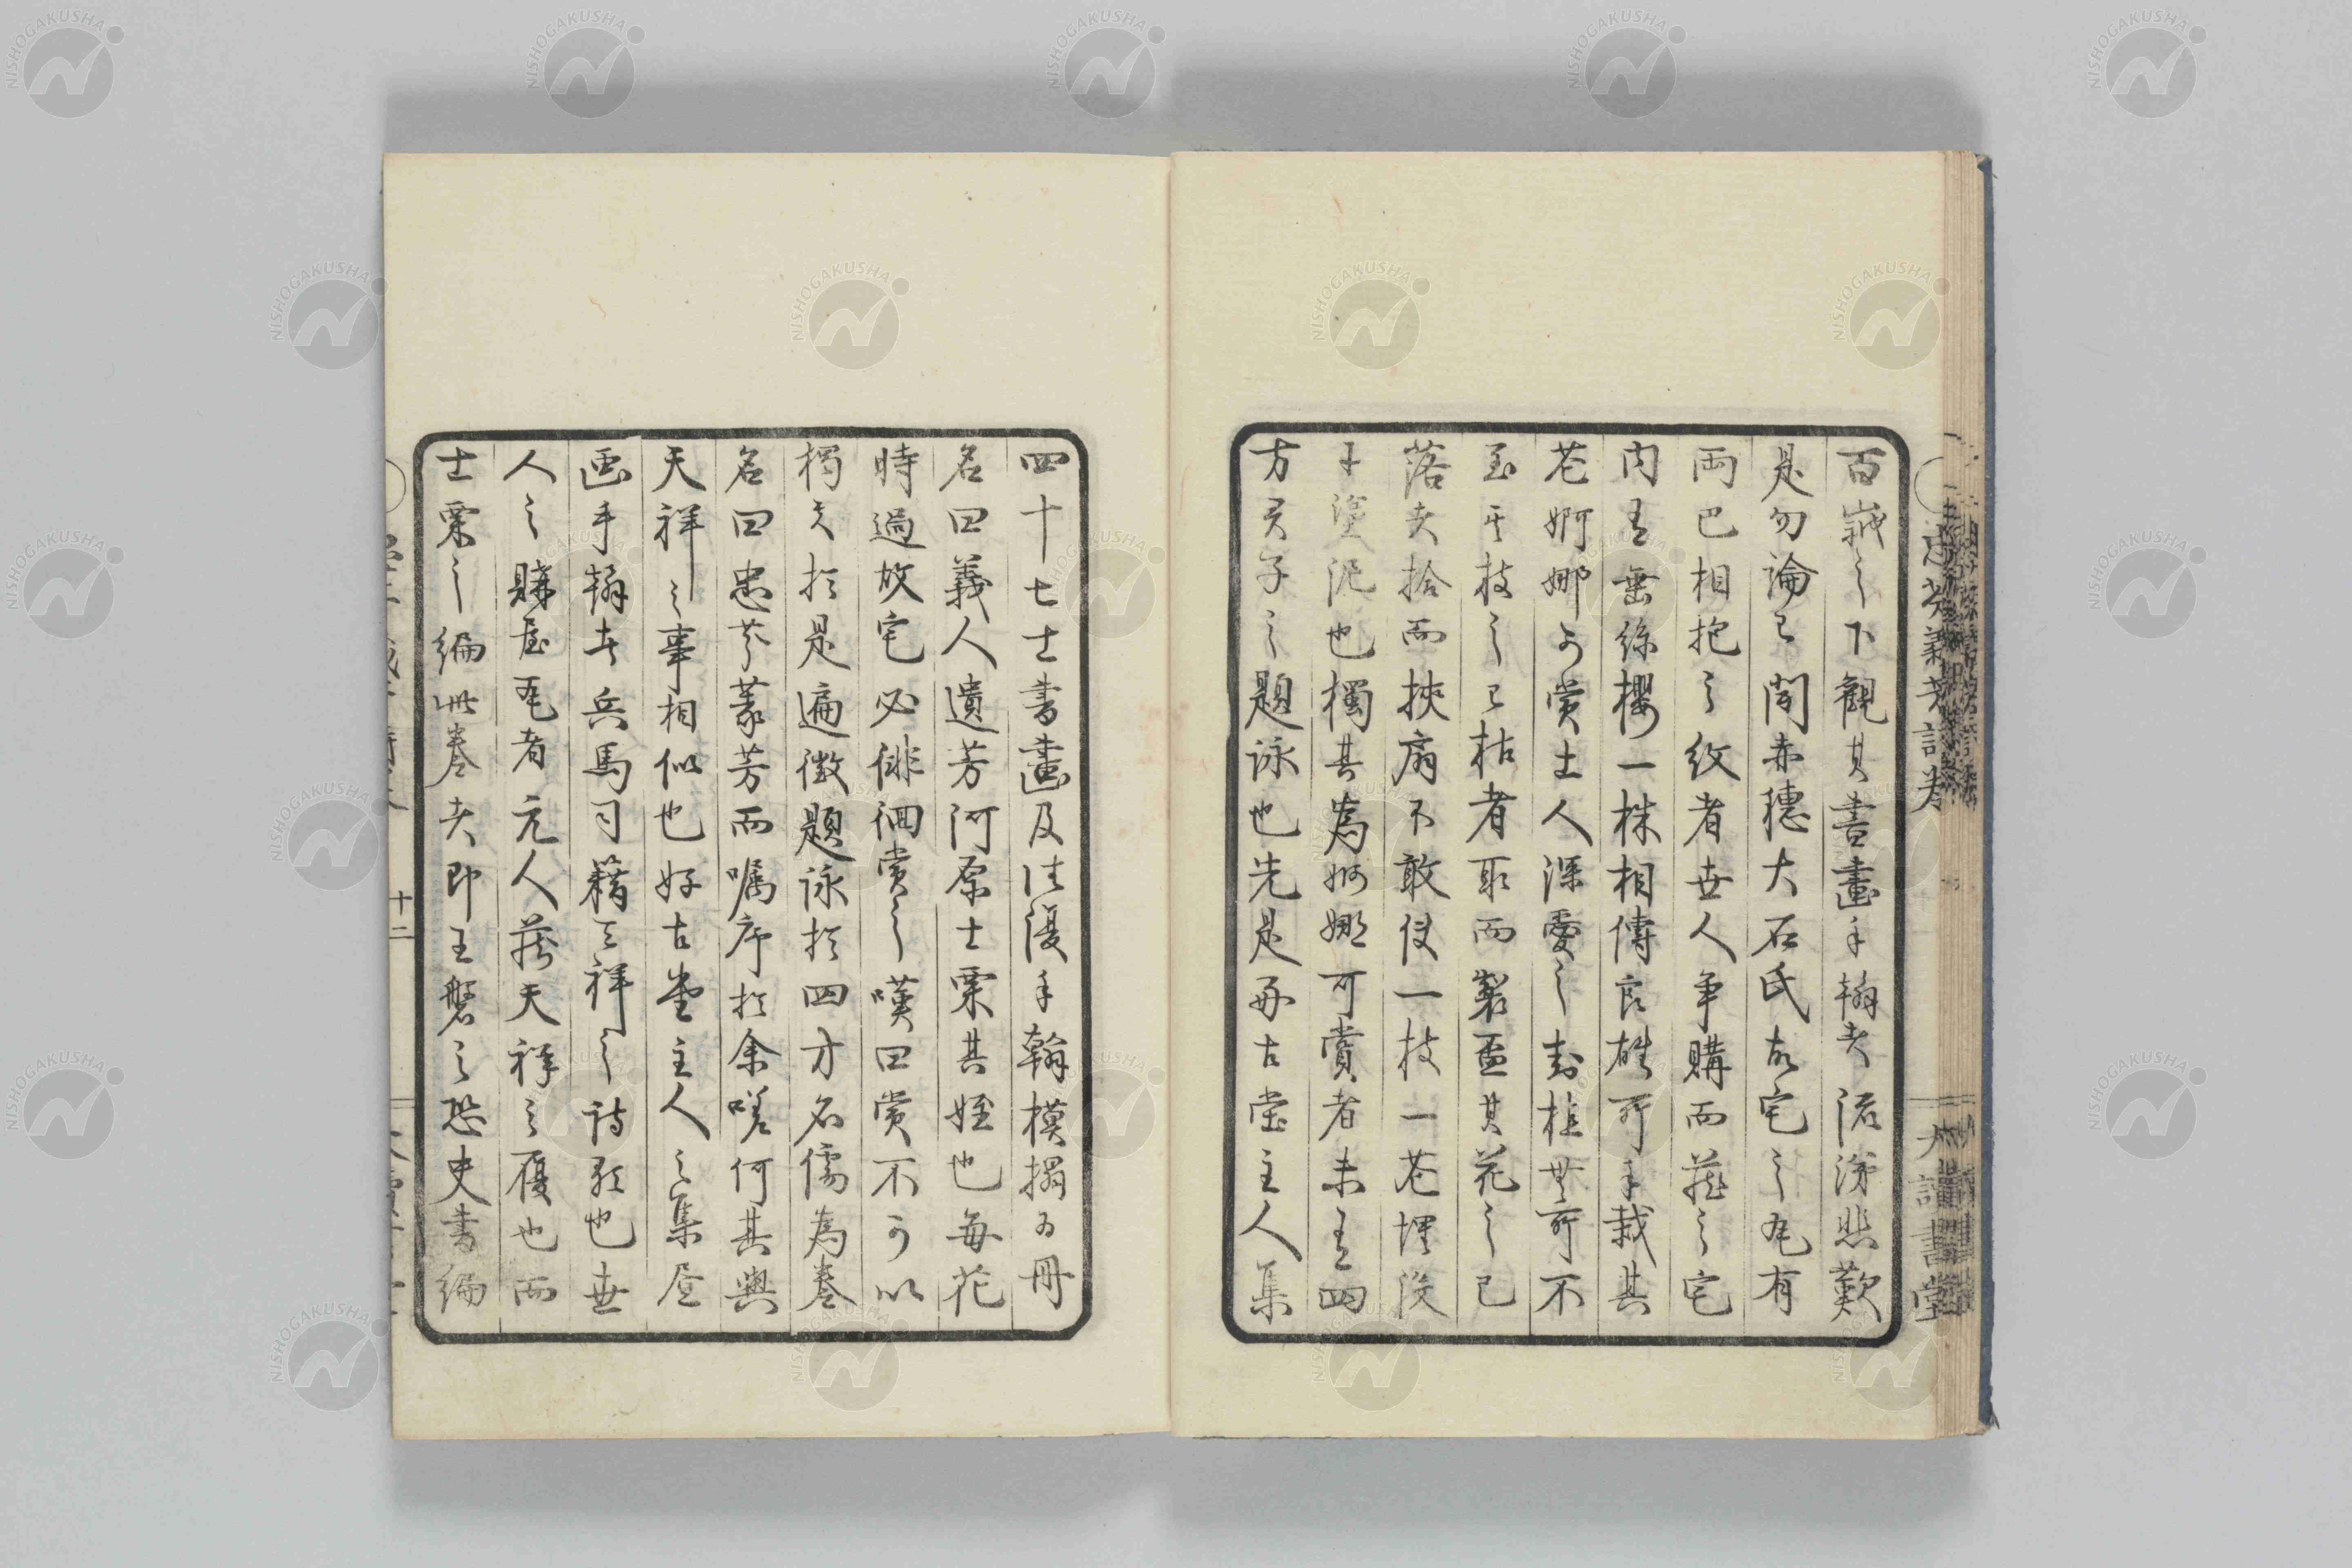 百歳之下觀其書畫手翰者流涕悲歎
是勿論已聞赤穗大石氏故宅之瓦有
兩巴相抱之紋者世人爭購而藏之宅
内有垂絲櫻一株相傳良雄所手栽其
花婀娜可賞土人深愛之封植無所不
至其枝之已枯者取而製盃其花之已
落者拾而挾扇不敢使一枝一花埋沒
于塗泥也獨其為婀娜可賞者未有四
方君子之題詠也先是好古堂主人集
四十七士書畫及往復手翰模搨為冊
名曰義人遺芳河原士栗其姪也每花
時過故宅必徘徊賞之嘆曰賞不可以
獨矣於是遍徵題詠於四方名儒為卷
名曰忠芬義芳而囑序於余嗟何其與
天祥之事相似也好古堂主人之集
画手翰者兵馬司籍天祥之詩歌也世
人之購屋瓦者元人藏天祥之履也而
士栗之編此卷者即王磐之恐史書編
十二
NISHOGAKUSHA